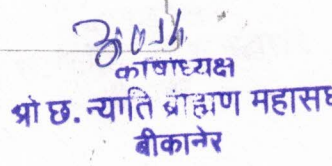 काेषाध्यक्ष
श्री छ. न्याति ब्राह्मण महासंघ
बीकानेर